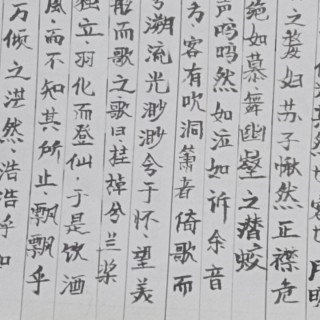 其然也客曰月明
之嫠妇苏子愀然正襟危
绝如慕舞幽壑之潜蛟
声呜呜然如泣如诉余音
为客有吹洞箫者倚歌而
兮溯流光渺渺兮于怀望美
而歌之歌曰桂棹兮兰桨
独立羽化而登仙于是饮酒
风而不知其所止飘飘乎
万顷之茫然浩浩乎如